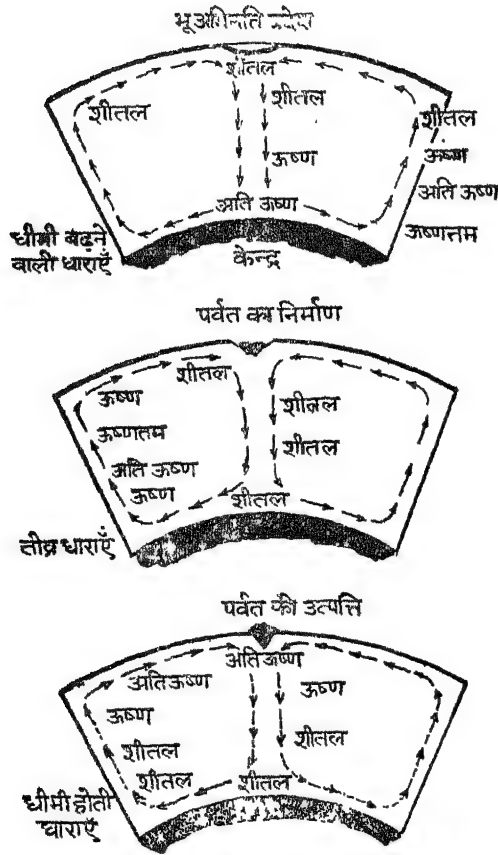 भूअभिनति प्रदेश
शीतल
शीतल
शीतल
शीतल
ऊष्ण
ऊष्ण
अति ऊष्ण
अति ऊष्ण
ऊष्णत्तम
धीमी बढ़ने
वाली धाराएँ
केन्द्र
पर्वत का निर्माण
शीतल
ऊष्ण
शीतल
ऊष्णतम
शीतल
अति ऊष्ण
ऊष्ण
शीतल
तीव्र धाराएँ
पर्वत की उत्पत्ति
अतिऊष्ण
अतिऊष्ण
ऊष्ण
ऊष्ण
शीतल
शीतल
शीतल
शीतल
धीमी होती
धाराएँ